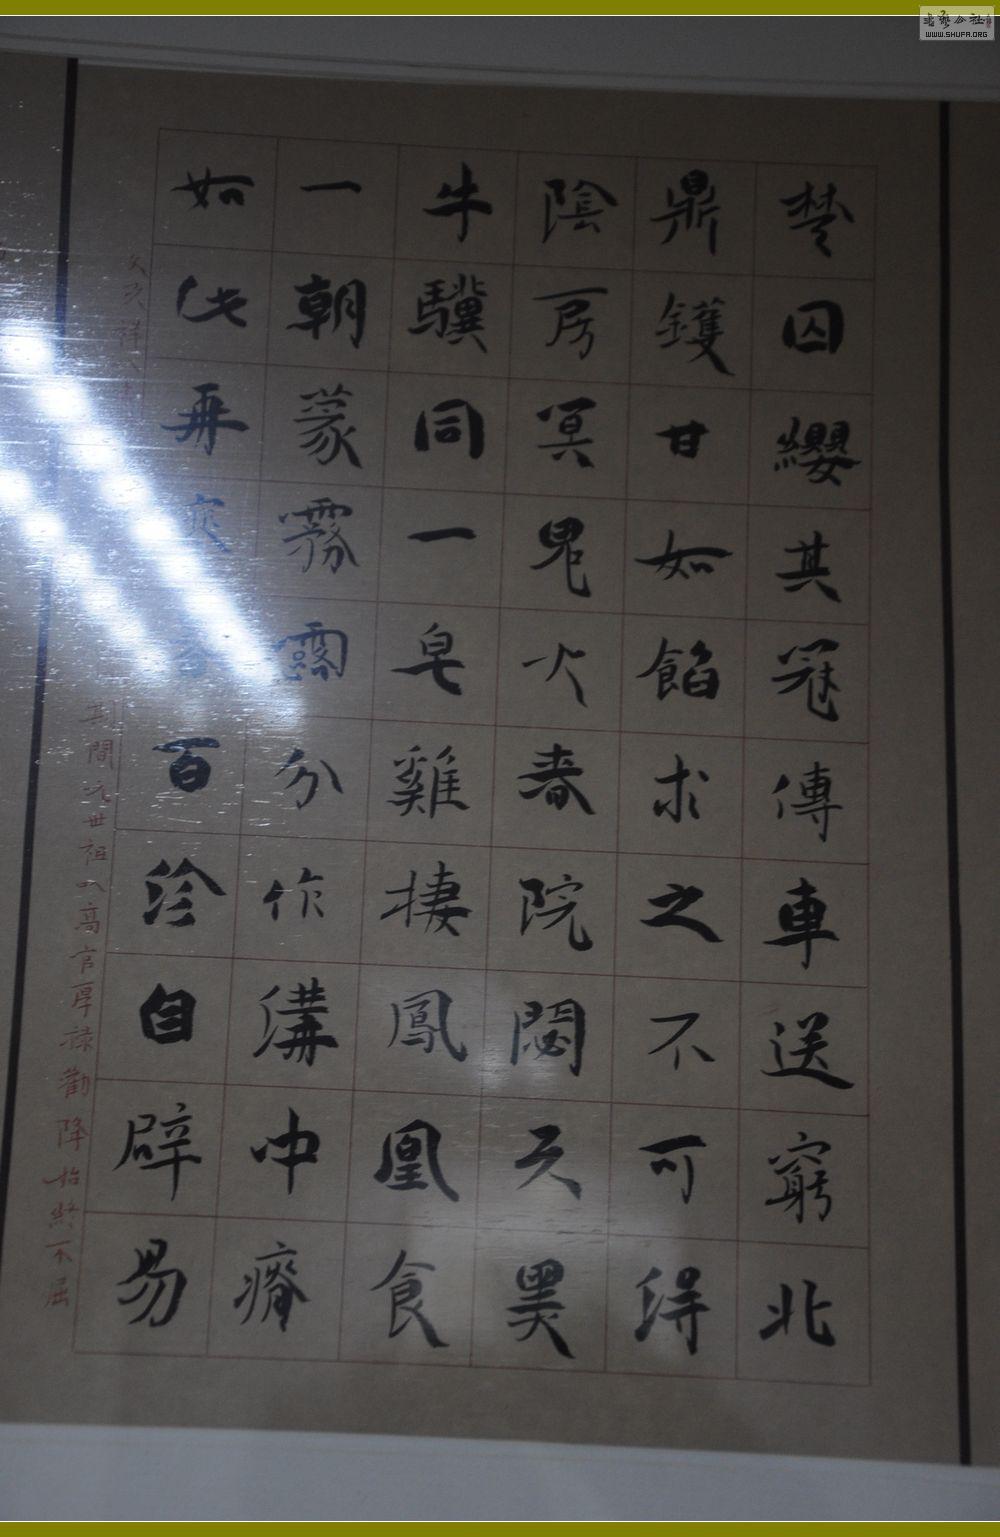 楚囚纓其冠傳車送窮北
鼎鑊甘如餡求之不可得
陰房冥鬼火春院閟天黑
牛驥同一皂雞棲鳳凰食
一朝蒙霧露分作溝中瘠
如此再寒暑百沴自辟易
文天祥
期間元世祖以高官厚祿勸降始終不屈
WWW.SHUFA.ORG